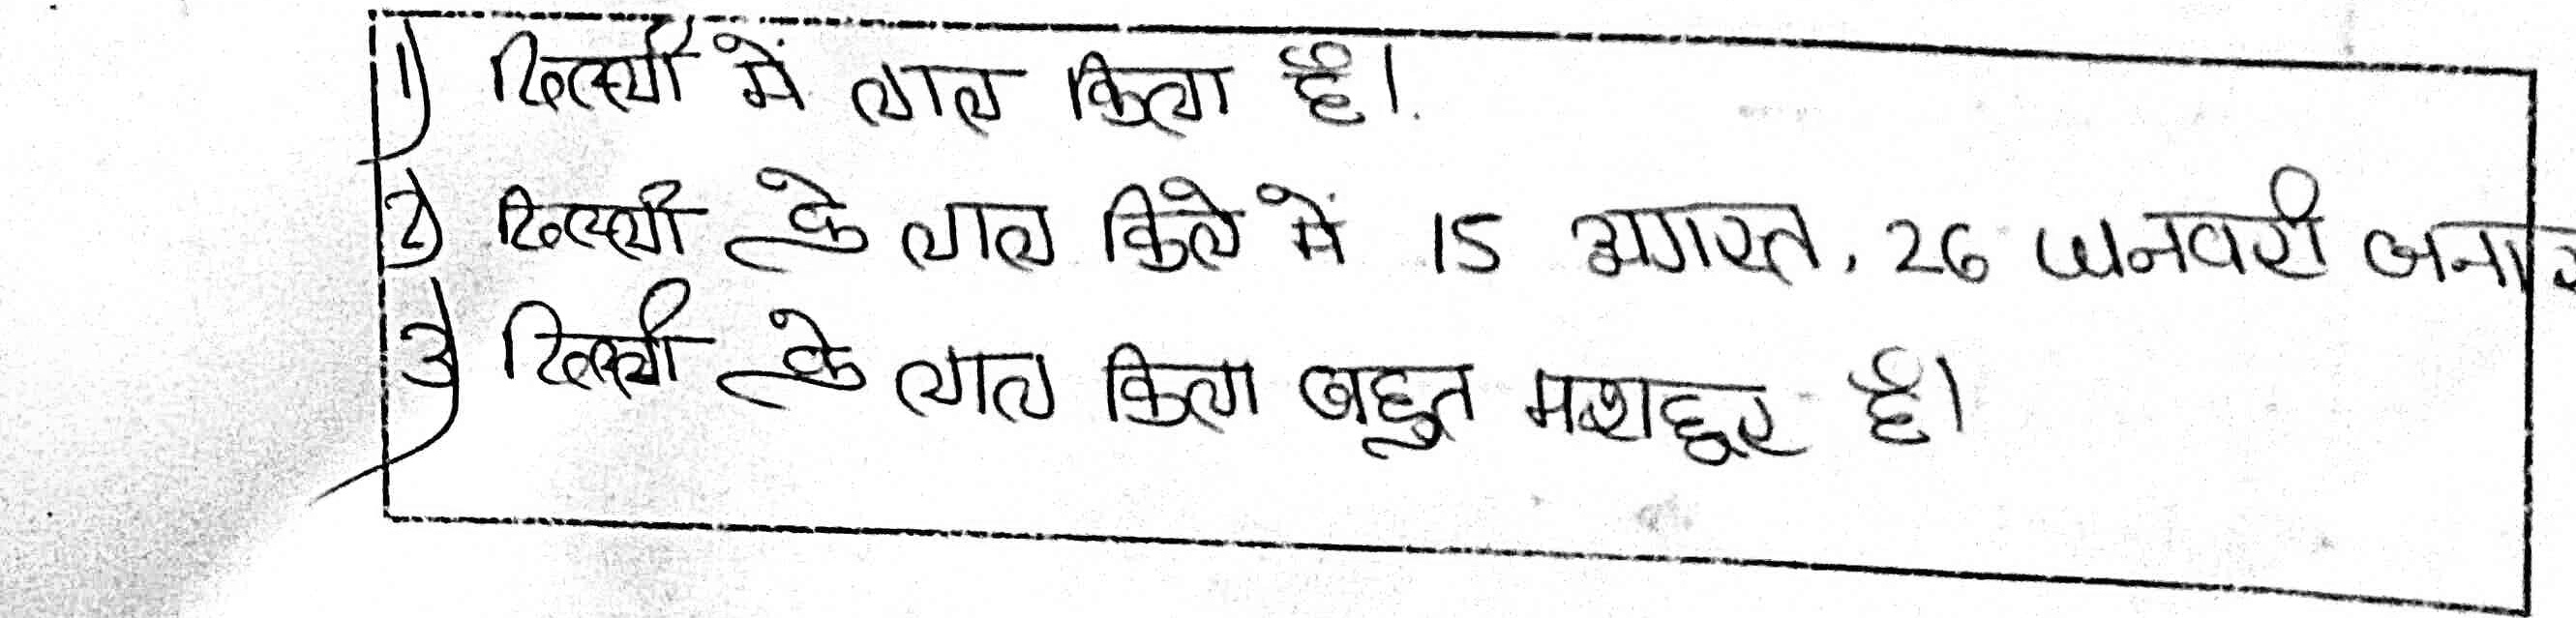 1) दिल्ली में लाल किला है।
2) दिल्ली के लाल किले में 15 अगस्त, 26 जनवरी
3) दिल्ली के लाल किला बहुत मशहूर है।